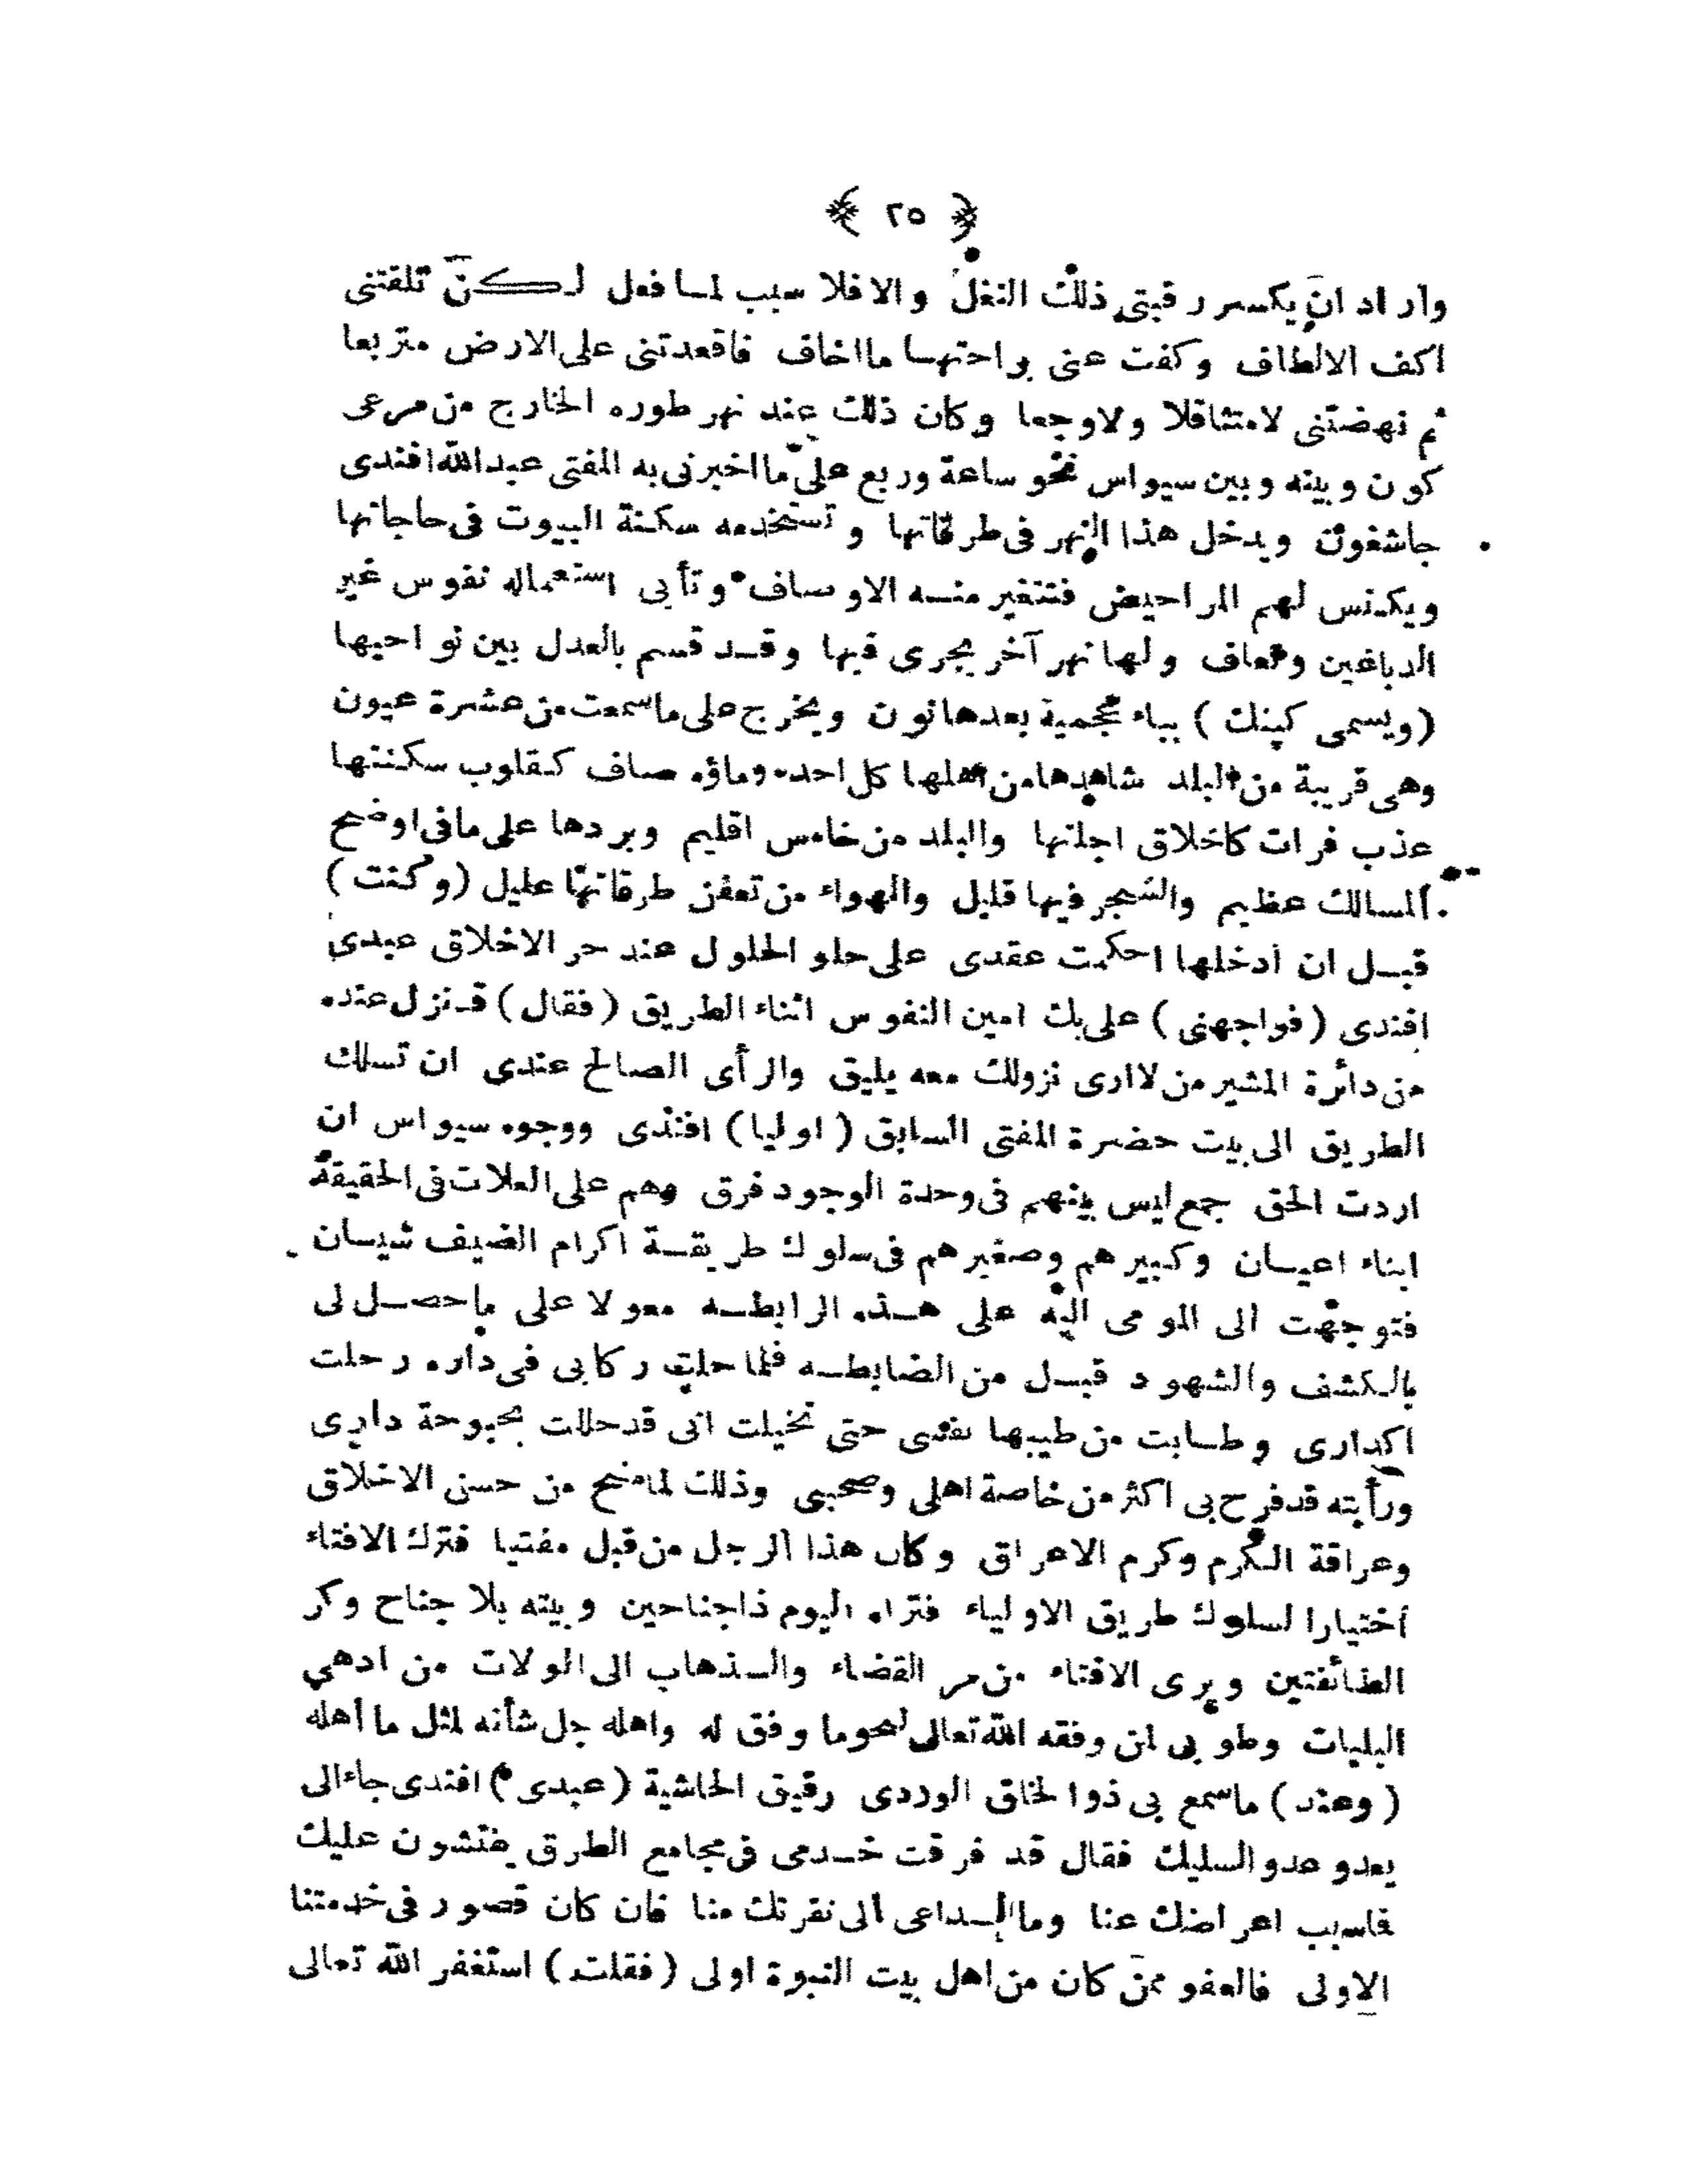 ﴿ ٢٥ ﴾
واراد ان يكسر رقبتى ذلك النغل والا فلا سبب لما فعل لكن تلقتنى
اكف الالطاف وكفت عنى براحتها ما اخاف فاقعدتنى على الارض متربعا
ثم نهضتنى لا متثاقلا ولا وجعا وكان ذلك عند نهر طوره الخارج من مرعى
كون وبينه وبين سيواس نحو ساعة وربع على ما اخبرنى به المفتى عبدالله افندى
جاشغون ويدخل هذا النهر فى طرقاتها وتستخدمه سكنة البيوت فى حاجاتها
ويكنس لهم المراحيض فتتغير منه الاوصاف وتأبى استعماله نفوس غير
الدباغين وتعاف ولها نهر آخر يجرى فيها وقد قسم بالعدل بين نواحيها
(ويسمى كپنك) بباء عجمية بعدها نون ويخرج على ما سمعت من عشرة عيون
وهى قريبة من البلد شاهدها من اهلها كل احد وماؤه صاف كقلوب سكنتها
عذب فرات كاخلاق اجلتها والبلد من خامس اقليم وبردها على ما فى اوضح
المسالك عظيم والشجر فيها قليل والهواء من تعفن طرقاتها عليل (وكنت)
قبل ان ادخلها احكمت عقدى على حلو الحلول عند حر الاخلاق عبدى
افندى (فواجهنى) على بك امين النفوس اثناء الطريق (فقال) قد نزل عنده
من دائرة المشير من لا ارى نزولك معه يليق والرأى الصالح عندى ان تسلك
الطريق الى بيت حضرة المفتى السابق (اوليا) افندى ووجوه سيواس ان
اردت الحق جمع ليس بينهم فى وحدة الوجود فرق وهم على العلات فى الحقيقة
ابناء اعيان وكبيرهم وصغيرهم فى سلوك طريقة اكرام الضيف شيان
فتوجهت الى المومى اليه على هذه الرابطه معولا على ما حصل لى
بالكشف والشهود قبل من الضابطه فلما حلت ركابى فى داره رحلت
اكدارى وطابت من طيبها نفسى حتى تخيلت انى قد حللت بحبوحة دارى
ورأيته قد فرح بى اكثر من خاصة اهلى وصحبى وذلك لما منح من حسن الاخلاق
وعراقة الكرم وكرم الاعراق وكان هذا الرجل من قبل مفتيا فترك الافتاء
اختيارا لسلوك طريق الاولياء فتراه اليوم ذا جناحين وبيته بلا جناح وكر
الطائفتين ويرى الافتاء من مر القضاء والذهاب الى الولات من ادهى
البليات وطوبى لمن وفقه الله تعالى لنحو ما وفق له واهله جل شأنه لمثل ما أهله
(وعند) ما سمع بى ذو الخلق الوردى رقيق الحاشية (عبدى) افندى جاء الى
يعدو عدو السليك فقال قد فرقت خدمى فى مجامع الطرق يفتشون عليك
فا سبب اعراضك عنا وما الداعى الى نفرتك منا فان كان قصور فى خدمتنا
الاولى فالعفو ممن كان من اهل بيت النبوة اولى (فقلت) استغفر الله تعالى